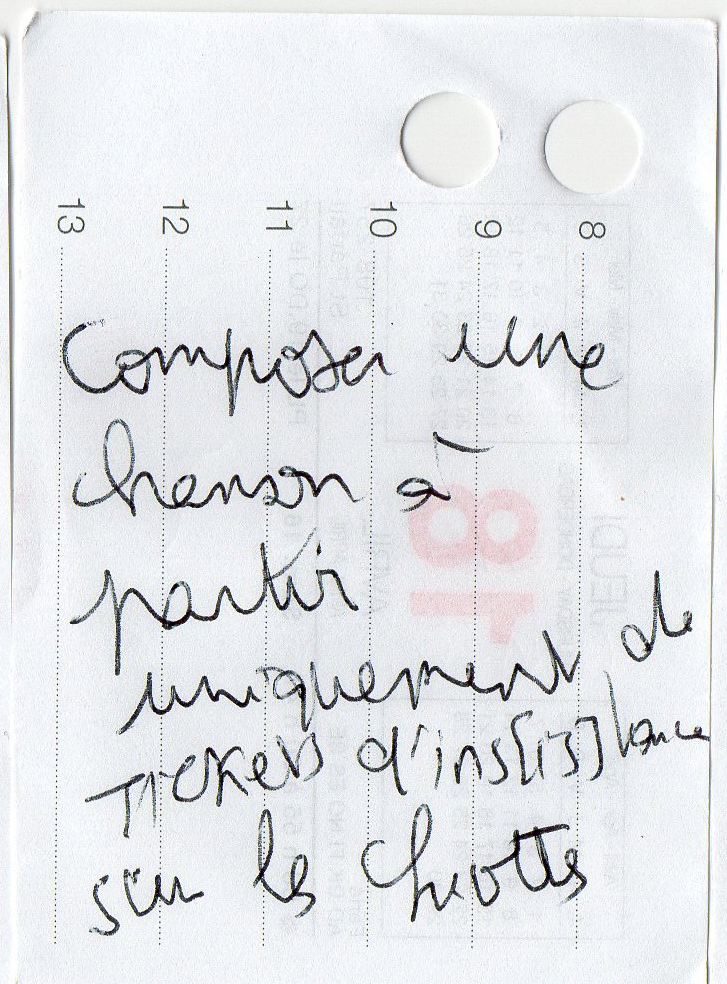 13
12
11
10
9
8
Composer une
chanson à
partir
uniquement de
Tickets d'ins[is]tance
sur les chiottes
18
JEUDI